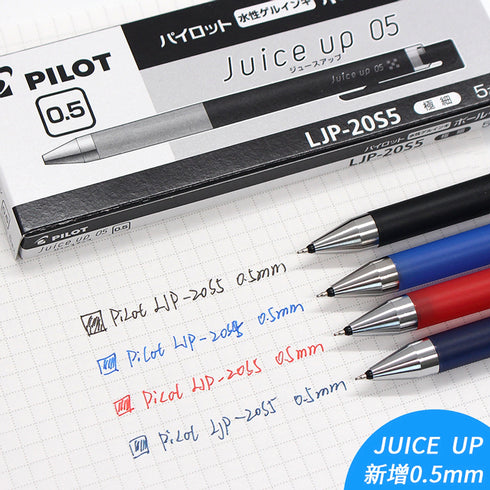 パイロット 水性ゲルインキ
PILOT
Juice up 05
ジュースアップ
Juice up 05
0.5
LJP-20S5 極細
パイロット 水性ゲルインキ ボール
PILOT
Juice up 05 0.5
LJP-20S5 極細
Pilot LJP-20S5 0.5mm
Pilot LJP-20S5 0.5mm
Pilot LJP-20S5 0.5mm
Pilot LJP-20S5 0.5mm
JUICE UP
新增0.5mm